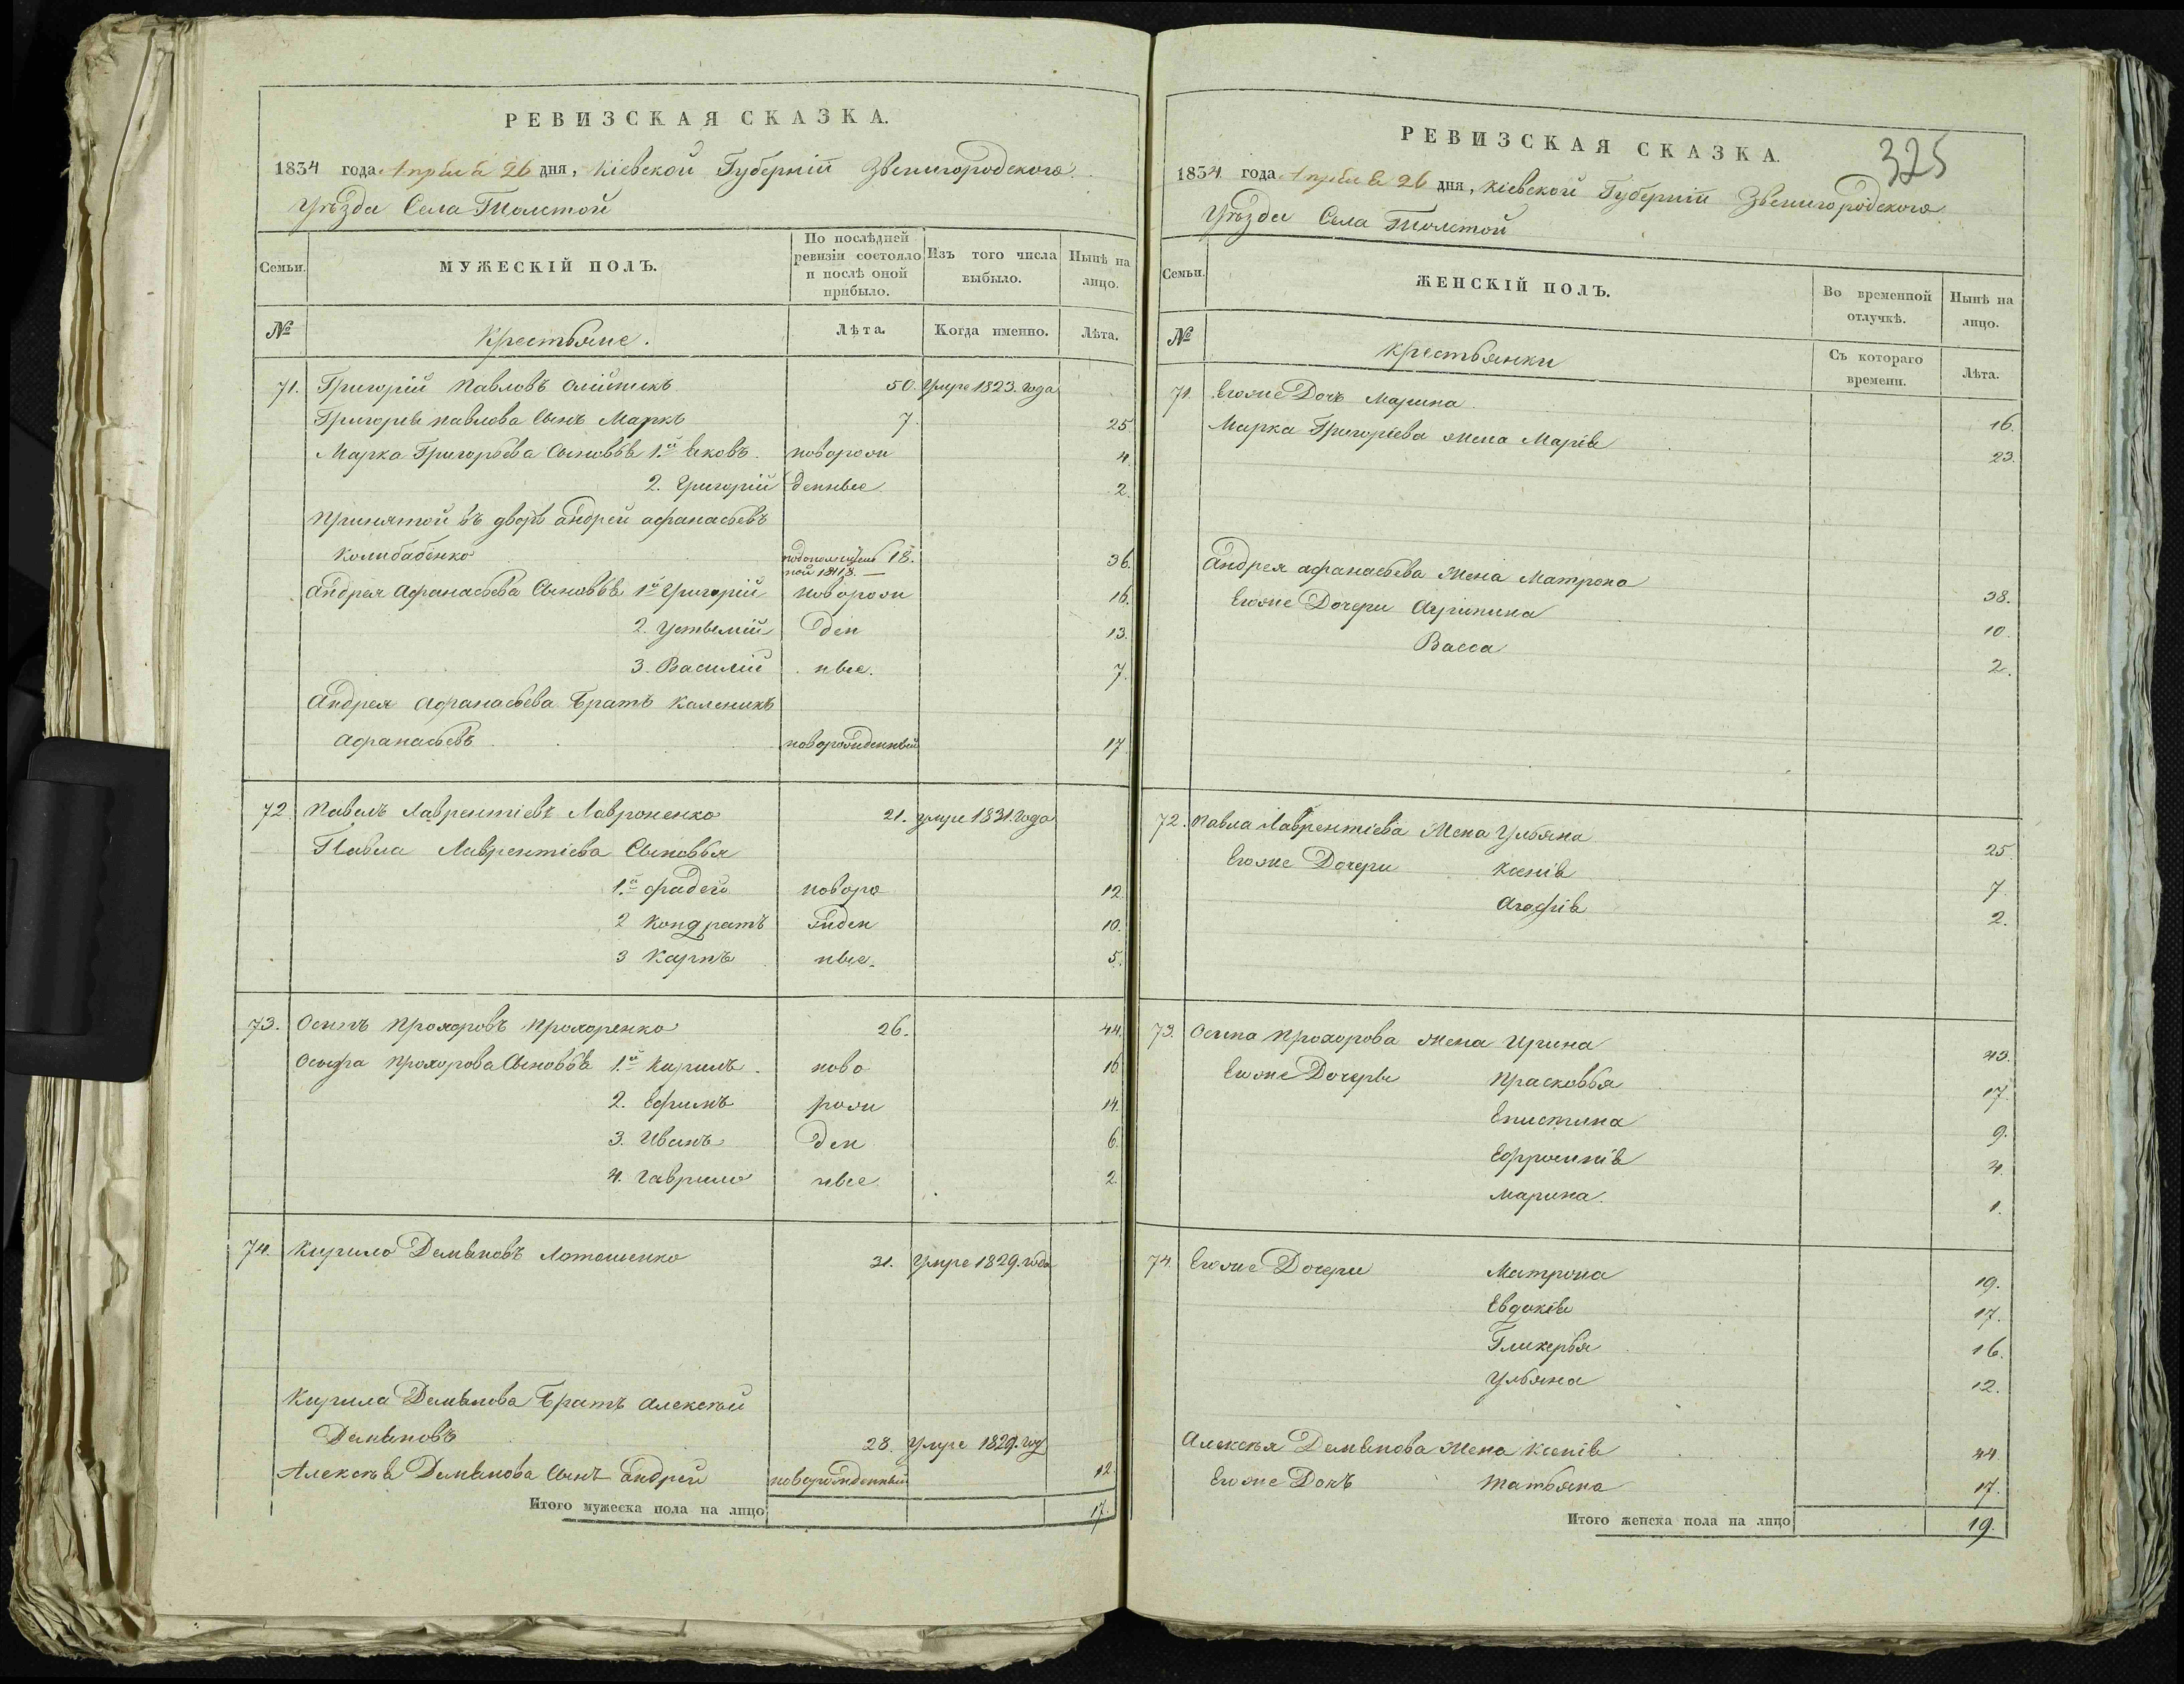 РЕВИЗСКАЯ СКАЗКА.
1834 года Апреля 26 дня, Кіевской Губерніи Звенигородского
Уѣзда Села Толстой
Семьи.
МУЖЕСКІЙ ПОЛЪ.
По послѣдней ревизіи состояло и послѣ оной прибыло.
Изъ того числа выбыло.
Нынѣ на лицо.
№
Крестьяне.
Лѣта.
Когда именно.
Лѣта.
71. Григорій Павловъ Олійникъ 50. Умре 1823. года
Григорія Павлова Сынъ Маркъ 7. 25.
Марка Григорьева Сыновья 1й Яковъ.oворож 4.
2. Григорій денные 2.
Принятой въ дворъ андрей афанасьевъ
Колибабенко 18. 36.
ной 1818.
Андрея Афанасьева Сыновья 1й Григорій Новорож 16.
2. Устымій ден 13.
3. Василій ные. 7.
Андрея Афанасьева Братъ Каленикъ
Афанасьевъ новорожденный 17
72. Павелъ Лаврентіевъ Лавроненко 21. умре 1831. года
Павла Лаврентіева Сыновья
1й Фадей новоро 12.
2 Кондратъ жден 10.
3 Карпъ ные. 5.
73. Осипъ Прохоровъ Прохоренко 26. 44.
Осипа Прохорова Сыновья 1й Кирилъ. ново 16
2. Ефимъ рож 14.
3. Иванъ ден 6.
4. Гаврило ные 2.
74. Кирило Демяновъ Лоташенко 31. Умре 1829. года
Кирила Демянова Братъ Алексѣй
Демяновъ 28. Умре 1829. году
Алексѣя Демянова Сынъ андрей новорожденный 12.
Итого мужеска пола на лицо 17.
325
РЕВИЗСКАЯ СКАЗКА.
1834 года Апреля 26 дня, Кіевской Губерніи Звенигородского
Уѣзда Села Толстой
Семьи.
ЖЕНСКІЙ ПОЛЪ.
Во временной отлучкѣ.
Нынѣ на лицо.
№
Крестьянки
Съ котораго времени.
Лѣта.
71. Егоже Дочь Марина 16.
Марка Григоріева жена Марія 23.
Андрея афанасьева Жена Матрона 38.
Егоже Дочери Агрипина 10.
Васса 2.
72. Павла Лаврентіева Жена Ульяна 25.
Егоже Дочери Ксенія 7.
Агафія 2.
73. Осипа Прохорова жена Ирина 43.
Егоже Дочеры Прасковья 17.
Епистина 9.
Ефросинія 4.
Марина. 1.
74. Егоже Дочери Матрона 19.
Евдокія 17.
Гликерья 16.
Ульяна 12.
Алексѣя Демянова Жена Ксенія 44.
Егоже Дочь Татьяна 17.
Итого женска пола на лицо 19.